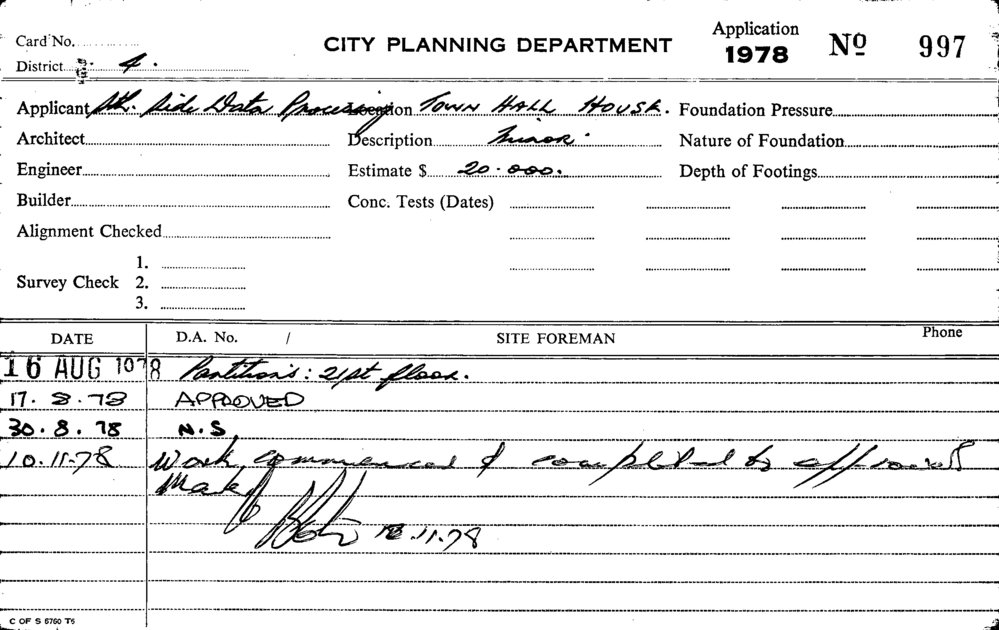 Card No.
CITY PLANNING DEPARTMENT
Application
1978
No 997
District 4.
Applicant Sth. Side Data Processing Location TOWN HALL HOUSE. Foundation Pressure
Architect Description Minor. Nature of Foundation
Engineer Estimate $ 20.000. Depth of Footings
Builder Conc. Tests (Dates)
Alignment Checked
1.
Survey Check 2.
3.
DATE D.A. No. / SITE FOREMAN Phone
16 AUG 1978 Partitions: 21st floor.
17.8.78 APPROVED
30.8.78 N.S.
10.11.78 Work commenced & completed to approval
12.11.78
C OF S 6760 T5